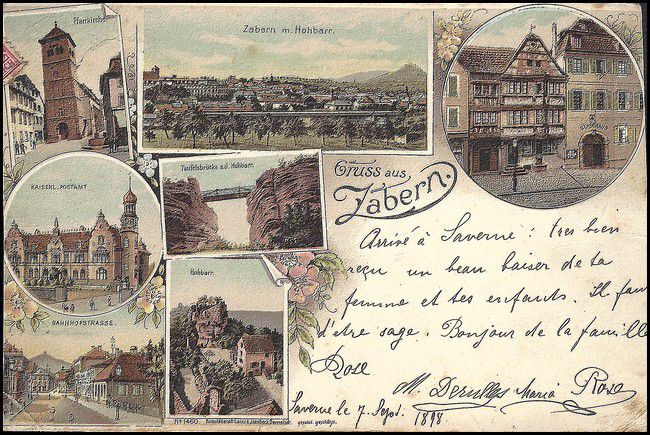 Pfarrkirche.
Zabern m. Hohbarr.
STADTHAUS
KAISERL. POSTAMT
Teufelsbrücke a.d. Hohbarr.
Gruss aus
Zabern.
Hohbarr.
BAHNHOFSTRASSE.
Arrivé à Saverne : tres bien
reçu un beau baiser de ta
femme et tes enfants. Il fau
d'etre sage. Bonjour de la famille
Rose
Maria Rose
Saverne le 7 Sept. 1898
No 1460